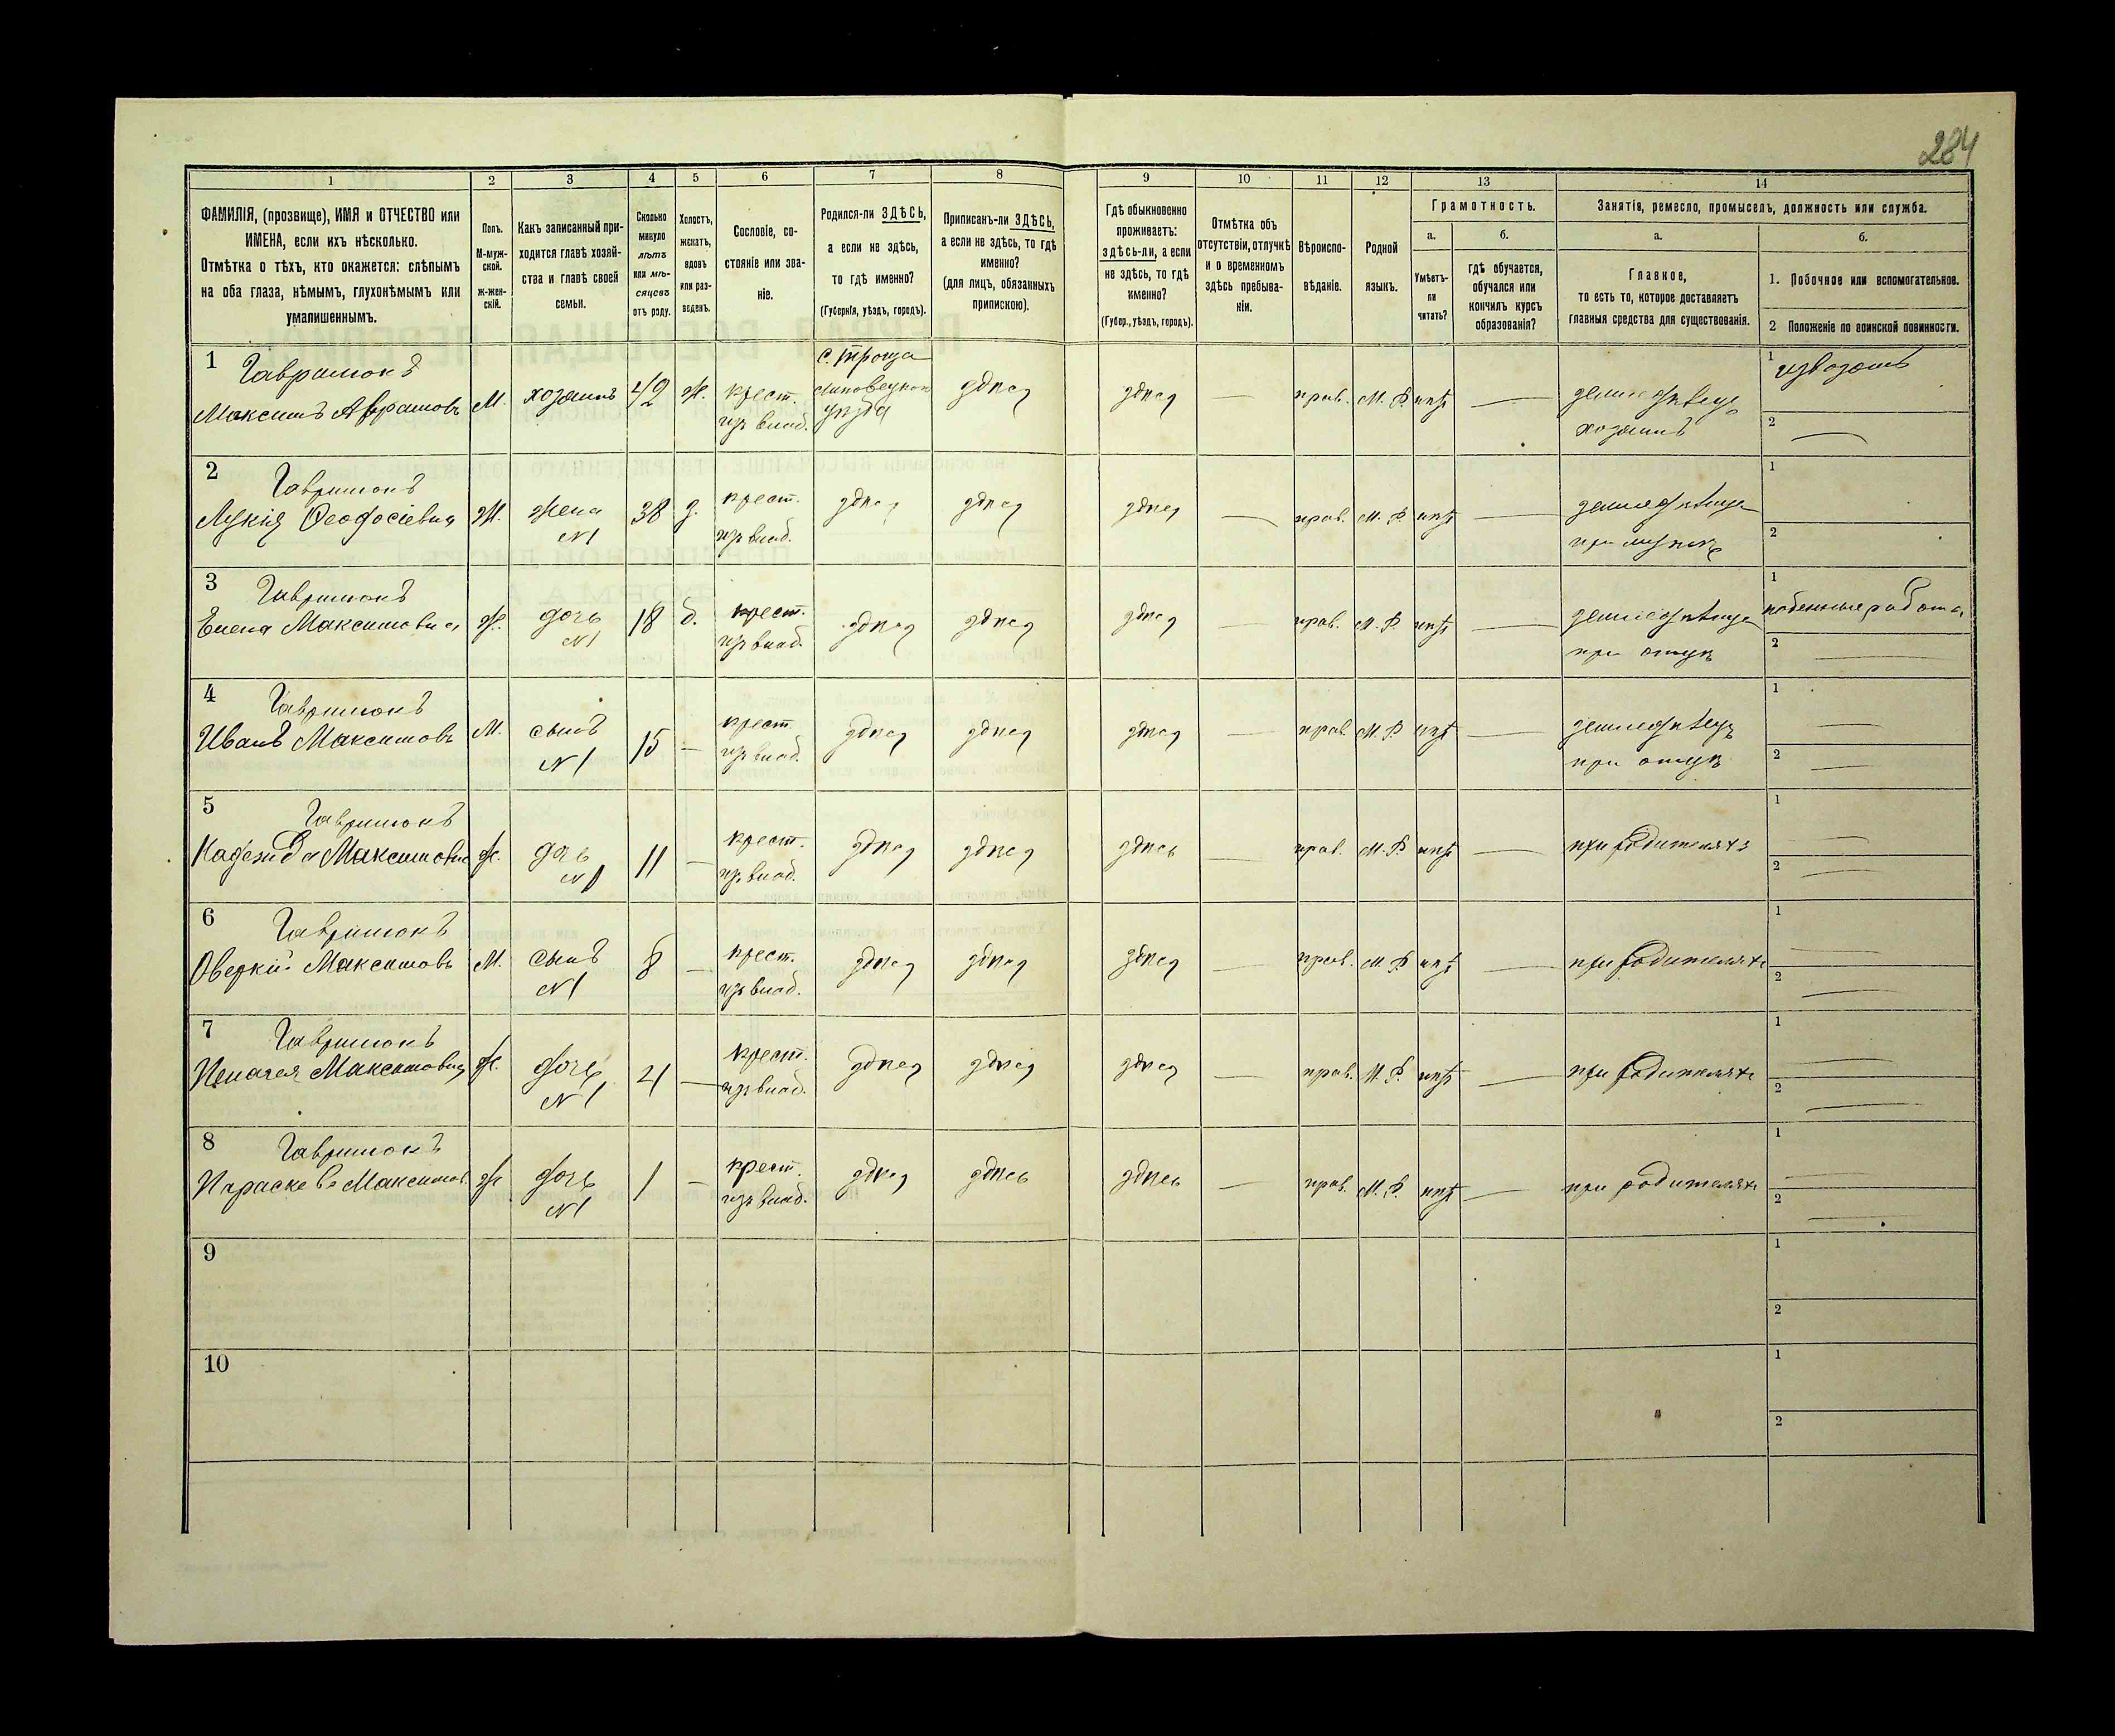 284
1 2 3 4 5 6 7 8 9 10 11 12 13 14
ФАМИЛІЯ, (прозвище), ИМЯ и ОТЧЕСТВО или
ИМЕНА, если ихъ нѣсколько.
Отмѣтка о тѣхъ, кто окажется: слѣпымъ
на оба глаза, нѣмымъ, глухонѣмымъ или
умалишеннымъ.
Полъ.
М-муж-
ской.
ж-жен-
скій.
Какъ записанный при-
ходится главѣ хозяй-
ства и главѣ своей
семьи.
Сколько
минуло
лѣтъ
или мѣ-
сяцевъ
отъ роду.
Холостъ,
женатъ,
вдовъ
или раз-
веденъ.
Сословіе, со-
стояніе или зва-
ніе.
Родился-ли ЗДѢСЬ,
а если не здѣсь,
то гдѣ именно?
(Губернія, уѣздъ, городъ).
Приписанъ-ли ЗДѢСЬ,
а если не здѣсь, то гдѣ
именно?
(для лицъ, обязанныхъ
припискою).
Гдѣ обыкновенно
проживаетъ:
здѣсь-ли, а если
не здѣсь, то гдѣ
именно?
(Губер., уѣздъ, городъ).
Отмѣтка объ
отсутствіи, отлучкѣ
и о временномъ
здѣсь пребыва-
ніи.
Вѣроиспо-
вѣданіе.
Родной
языкъ.
Грамотность.
а.
Умѣетъ-
ли
читать?
б.
гдѣ обучается,
обучался или
кончилъ курсъ
образованія?
Занятія, ремесло, промыселъ, должность или служба.
а.
Главное,
то есть то, которое доставляетъ
главныя средства для существованія.
б.
1. Побочное или вспомогательное.
2 Положеніе по воинской повинности.
1 Гаврилюкъ с. Троща 1 извозомъ
Максимъ Аврамовъ М. хозяинъ 42 ж. крест. здѣсь здѣсь — прав. М. Р. нѣтъ — земледѣлецъ
изъ влад. уѣзда хозяинъ 2 —
2 Гаврилюкъ 1
Лукія Феодосіевна Ж. жена 38 з. крест. здѣсь здѣсь здѣсь — прав. М. Р. нѣтъ — земледѣлица
N1 изъ влад. при мужѣ 2
3 Гаврилюкъ 1 поденные работы
Елена Максимовна Ж. дочь 18 д. крест. здѣсь здѣсь здѣсь — прав. М. Р. нѣтъ — земледѣлица
N1 изъ влад. при отцѣ 2 —
4 Гаврилюкъ 1 —
Иванъ Максимовъ М. сынъ 15 — крест. здѣсь здѣсь здѣсь — прав. М. Р. нѣтъ — земледѣлецъ
N1 изъ влад. при отцѣ 2 —
5 Гаврилюкъ 1 —
Надежда Максимовна Ж. дочь 11 — крест. здѣсь здѣсь здѣсь — прав. М. Р. нѣтъ — при родителяхъ
N1 изъ влад. 2 —
6 Гаврилюкъ 1 —
Оверкій Максимовъ М. сынъ 8 — крест. здѣсь здѣсь здѣсь — прав. М. Р. нѣтъ — при родителяхъ
N1 изъ влад. 2 —
7 Гаврилюкъ 1 —
Пелагея Максимовна Ж. дочь 4 — крест. здѣсь здѣсь здѣсь — прав. М. Р. нѣтъ — при родителяхъ
N1 изъ влад. 2 —
8 Гаврилюкъ 1 —
Параскева Максимов. Ж. дочь 1 — крест. здѣсь здѣсь здѣсь — прав. М. Р. нѣтъ — при родителяхъ
N1 изъ влад. 2 —
9 1
2
10 1
2